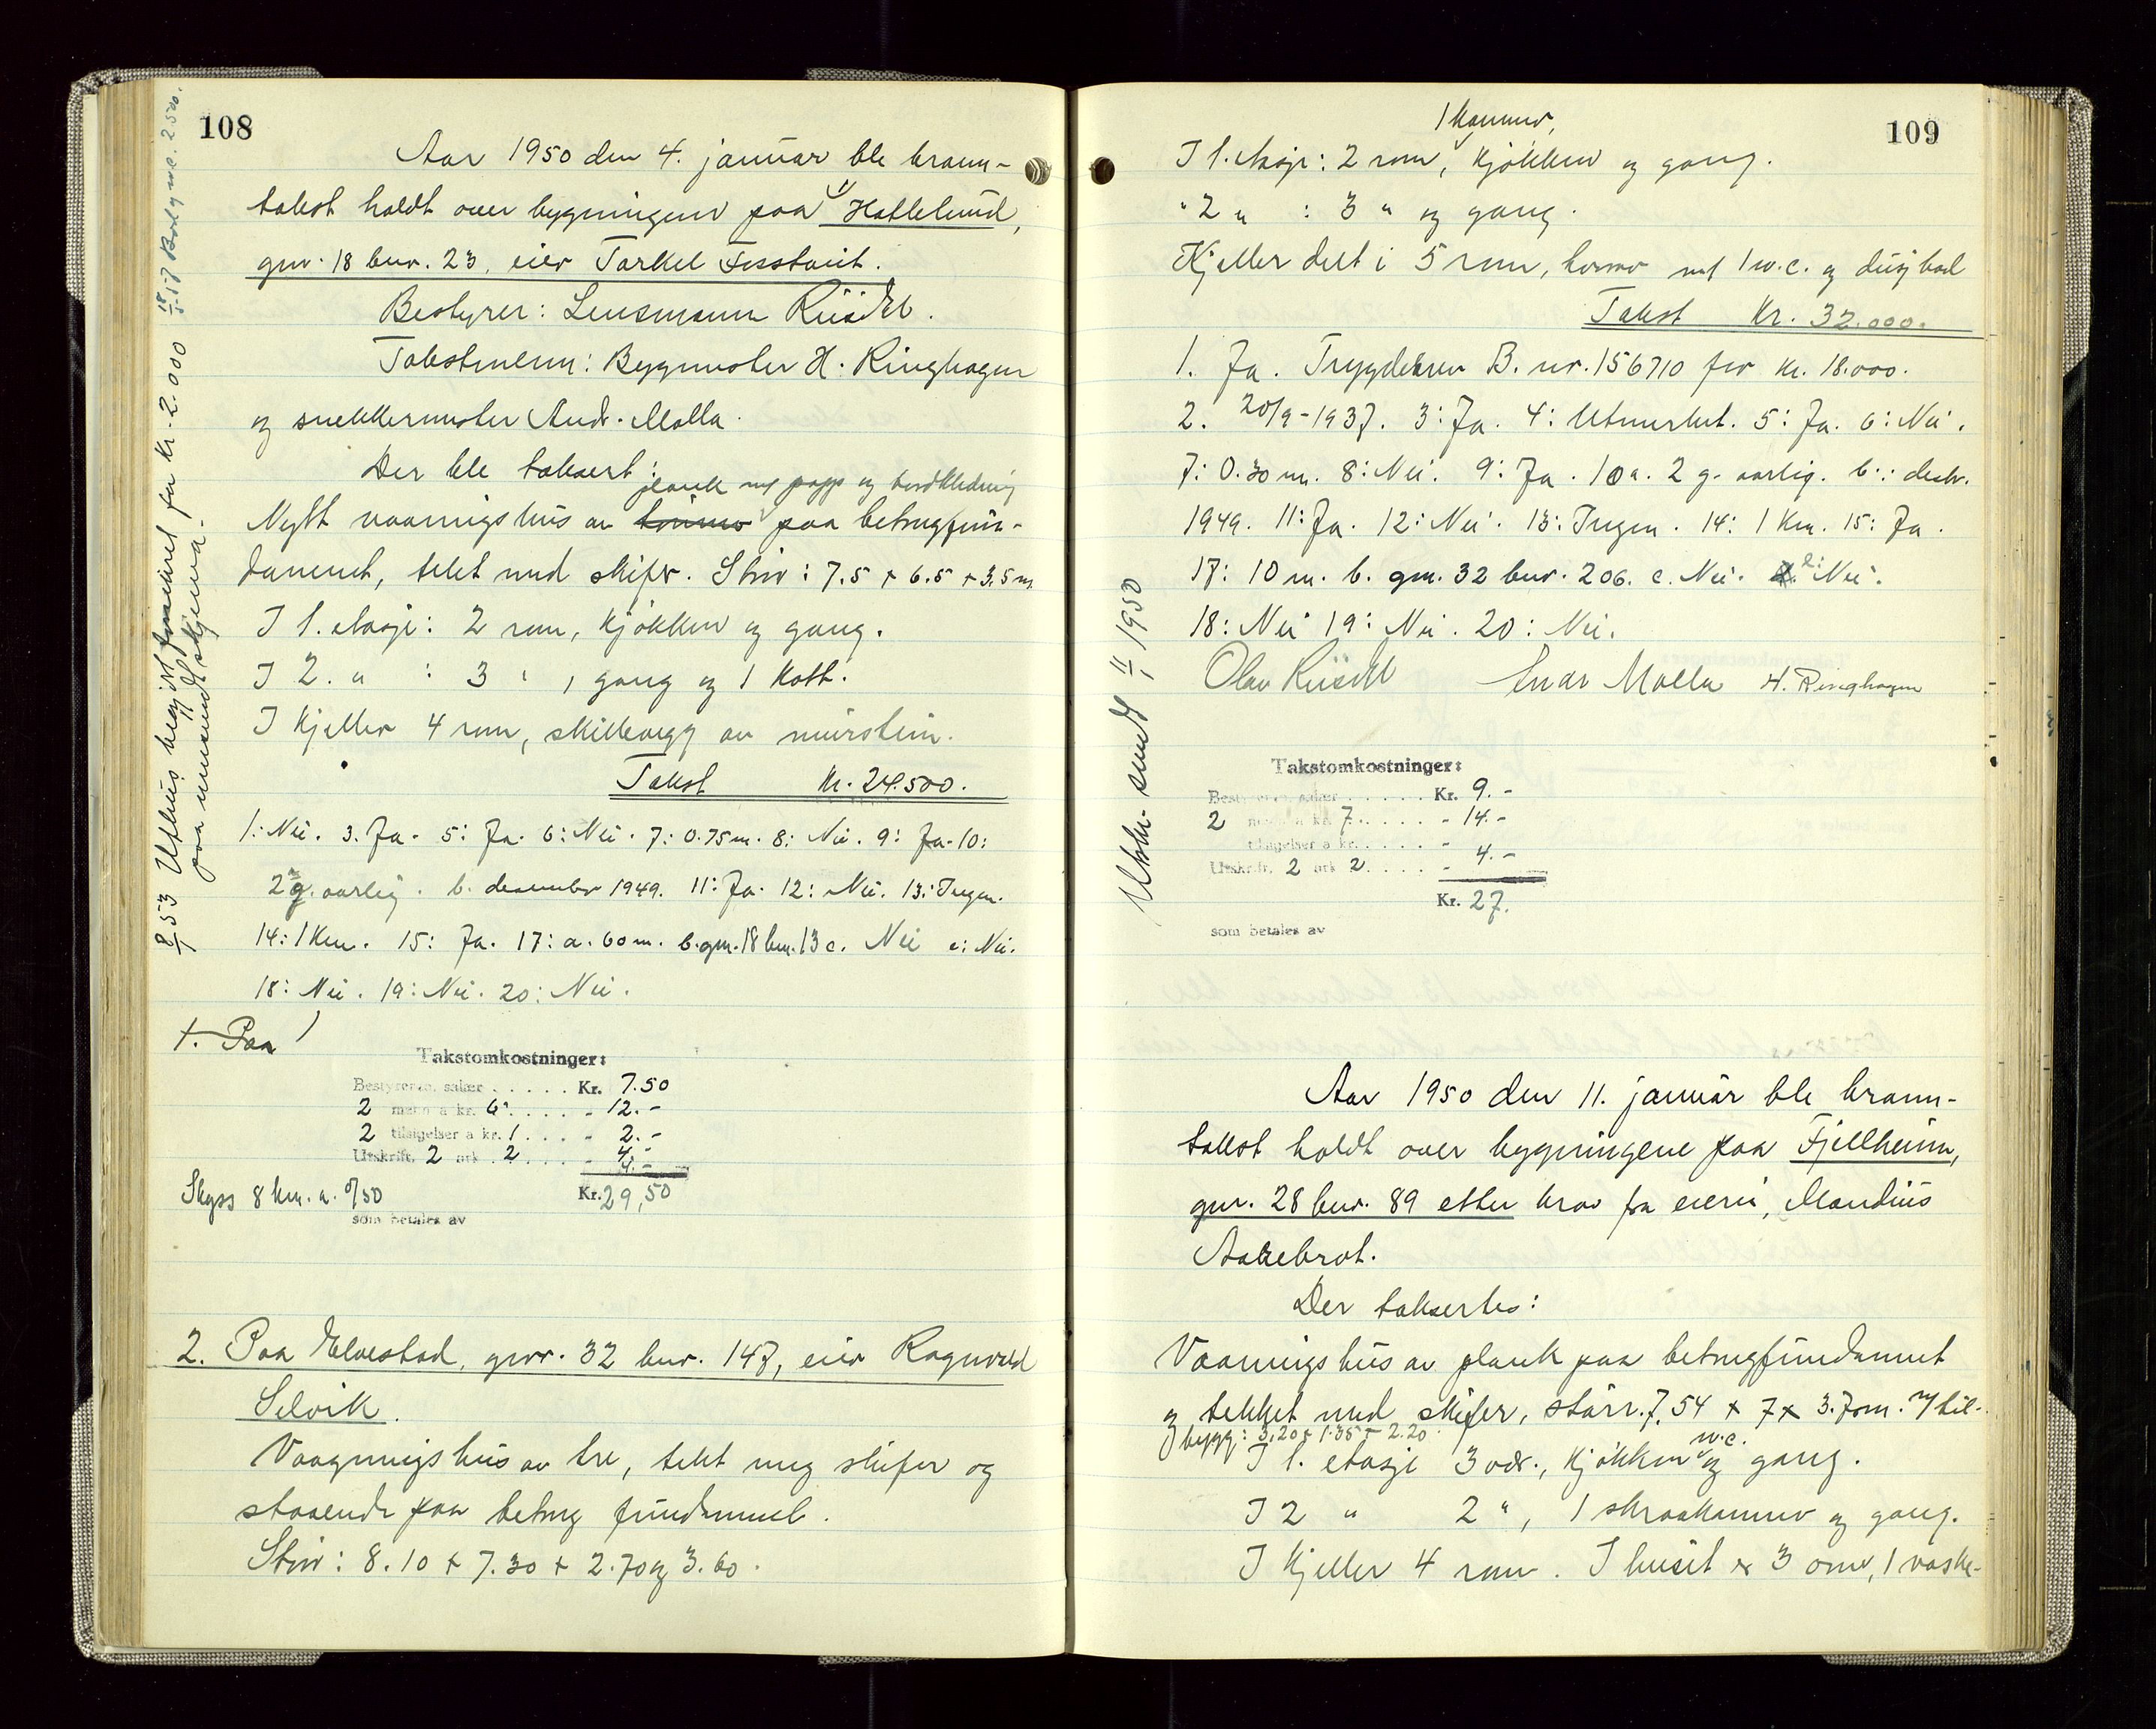 108
Aar 1950 den 4. januar ble brann-
takst holdt over bygningen paa "Hattelund,
gnr. 18 bnr. 23, eier Tarkel
Bestyrer: Lensmann Risdal.
Takstmenn: Bygmester H. Ringhagen
og snekkermester Andr. Malla.
Der ble taksert:
plank m/ papp og bordkledning
Nytt vaaningshus av tømmer paa betongfun-
dament, tekt med skifer. Størr: 7.5 + 6.5 + 3.5 m
I 1. etasje: 2 rom, kjøkken og gang.
I 2. " : 3 " , gang og 1 kott.
I kjeller 4 rom, skillevegg av murstein.
Takst Kr. 24.500.
1: Nei. 3. Ja. 5: Ja. 6: Nei. 7: 0.75 m. 8: Nei. 9: Ja. 10:
2 g. aarlig. b. desember 1949. 11: Ja. 12: Nei. 13: Ingen.
14: 1 km. 15: Ja. 17: a. 60 m. b. gnr. 18 bnr. 13 c. Nei e: Nei.
18: Nei. 19: Nei. 20: Nei.
1. Paa
Takstomkostninger:
Bestyrerens salær . . . . . Kr. 7.50
2 menn a kr. 6. . . . . - 12.-
2 tilsigelser a kr. 1 . . . - 2.-
Utskrift. 2 ark 2 . . . . - 4.-
4.-
Skyss 8 km. a. 0/50 Kr. 29,50
som betales av
2. Paa Elvestad, gnr. 32 bnr. 147, eier Ragnvald
Selvik.
Vaagningshus av tre, tekt meg skifer og
staaende paa betong fundament.
Størr: 8.10 + 7.30 + 2.70 og 3.60.
8/1 53 Uthus paa innsendt skjema.
109
1 kammer,
I 1. etasje: 2 rom, kjøkken og gang.
" 2 " : 3 " og gang.
Kjeller delt i 5 rom, herav med 1 w.c. og dusjbad
Takst Kr. 32.000.
1. Ja. Trygdekassen B. nr. 156710 for kr. 18.000.
2. 20/9-1937. 3: Ja. 4: Utmerket. 5: Ja. 6: Nei.
7: 0.30 m. 8: Nei. 9: Ja. 10 a. 2 g. aarlig. b: desbr.
1949. 11: Ja. 12: Nei. 13: Ingen. 14: 1 km. 15: Ja.
17: 10 m. b. gnr. 32 bnr. 206. c. Nei. Nei.
18: Nei 19: Nei. 20: Nei.
Olav Risdal Andr Malla H. Ringhagen
Utskr. sendt 11/1 1950
Takstomkostninger:
Bestyrerens salær . . . . . Kr. 9.-
2 menn a kr. 7. . . . . - 14.-
tilsigelser a kr. . . . . -
Utskrift. 2 ark 2 . . . . - 4.-
Kr. 27.
som betales av
Aar 1950 den 11. januar ble brann-
takst holdt over bygningene paa Fjellheim,
gnr. 28 bnr. 89 etter krav fra eieren, Mandius
Aakebrot.
Der taksertes:
Vaaningshus av plank paa betongfundament
og tekket med skifer, størr. 7.54 + 7 x 3.70 m. m/ til-
bygg: 3.20 + 1.35 + 2.20
w.c.
I 1. etasje 3 vær., kjøkken og gang.
I 2 " 2 ", 1 skraakammer og gang.
I kjeller 4 rom. I huset er 3 ovner, 1 vaske-